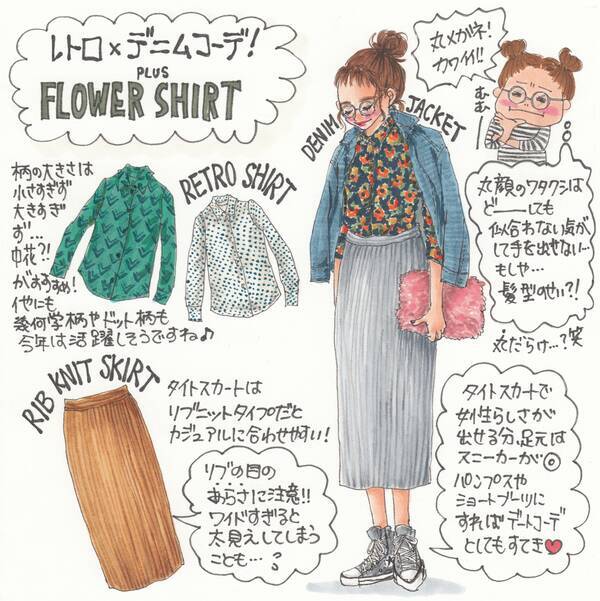 レトロ×デニムコーデ!
PLUS
FLOWER SHIRT
丸メガネ!
カワイイ!!
むむ
DENIM JACKET
RETRO SHIRT
柄の大きさは
小さすぎず
大きすぎ
ず…
中花?!
がおすすめ!
イヤにも
幾何学柄やドット柄も
今年は活躍しそうですね♪
丸顔のワタクシは
どーーしても
似合わない気が
して手を出せない…
もしや…
髪型のせい?!
丸だらけ…?笑
RIB KNIT SKIRT
タイトスカートは
リブニットタイプだと
カジュアルに合わせやすい!
リブの目の
あらさに注意!!
ワイドすぎると
太見えしてしまう
ことも…
タイトスカートで
女性らしさが
出せる分、足元は
スニーカーが◎
パンプスや
ショートブーツに
すればデートコーデ
としてもすてき♥